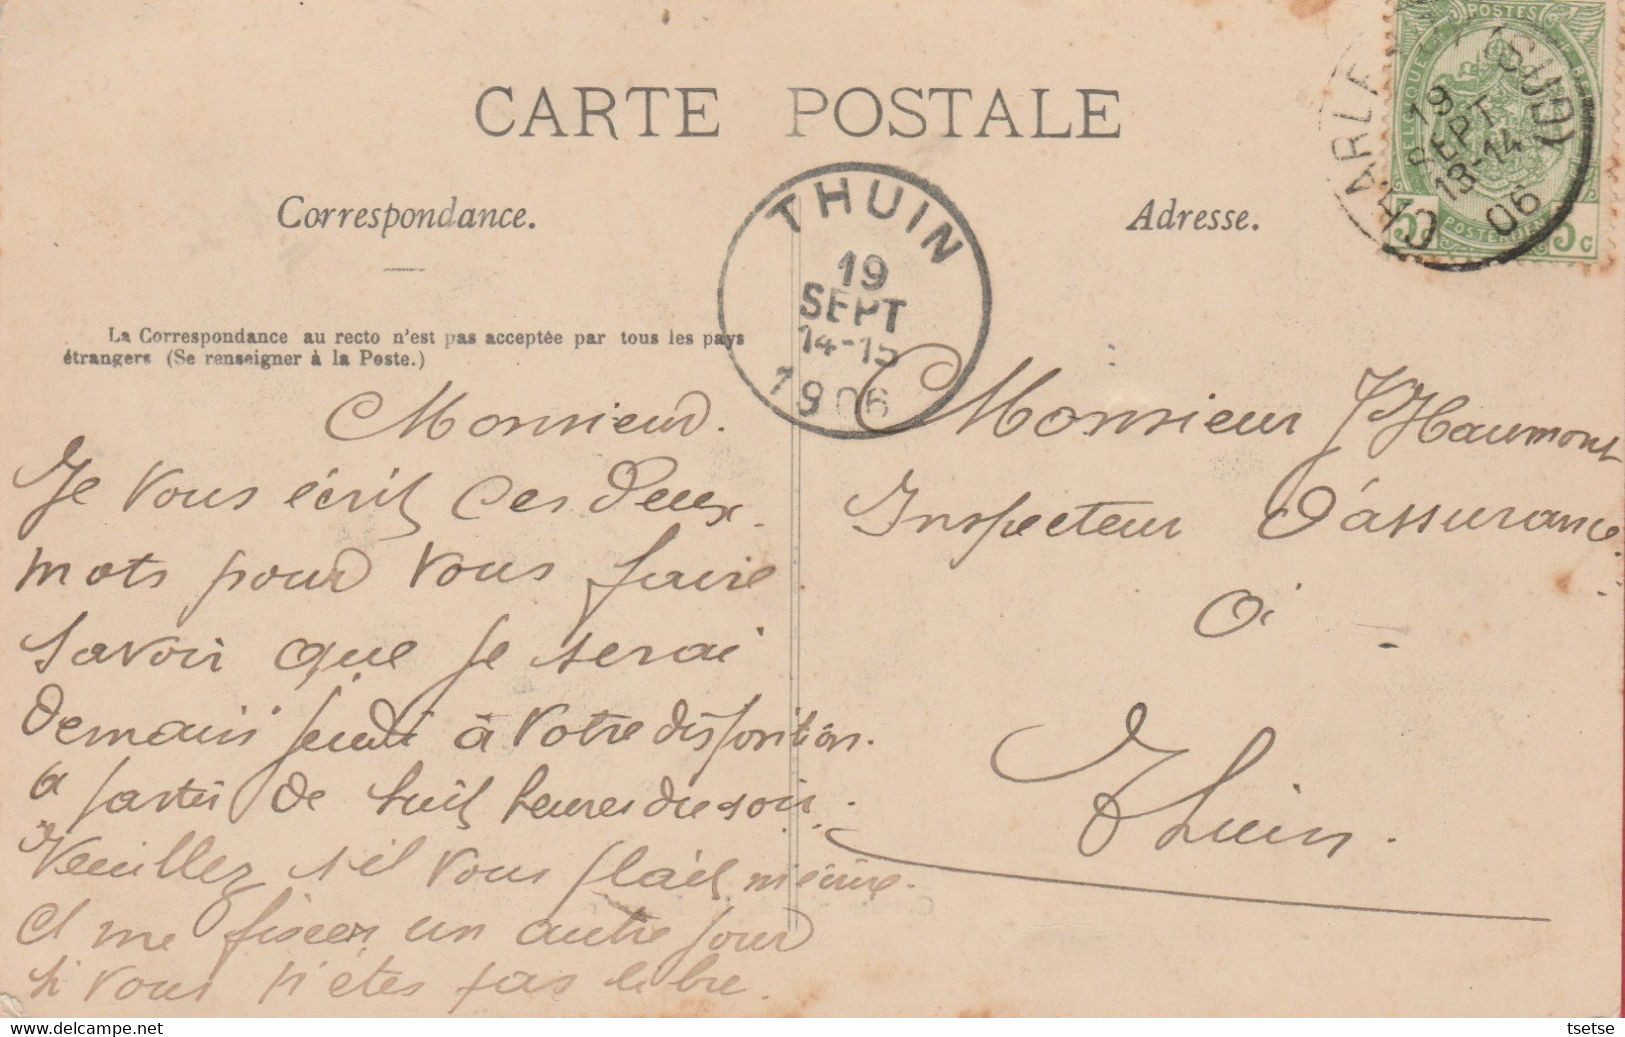 CARTE POSTALE
Correspondance.
Adresse.
La Correspondance au recto n'est pas acceptée par tous les pays
étrangers (Se renseigner à la Poste.)
THUIN
19
SEPT
14-15
1906
POSTES
BELGIQUE
5c
POSTERIJEN
5c
CHARLEROI (SUD)
19
SEPT
13-14
06
Monsieur.
Je vous écrit ces deux
mots pour vous faire
savoir que je serai
demain jeudi à votre disposition.
a partir de huit heures du soir.
Veuillez s'il vous plait m'écrire.
et me fiscer un autre jour
si vous n'étes pas libre.
Monsieur J Haumont
Inspecteur d'assurance
à
Thuin.
tsetse delcampe.net